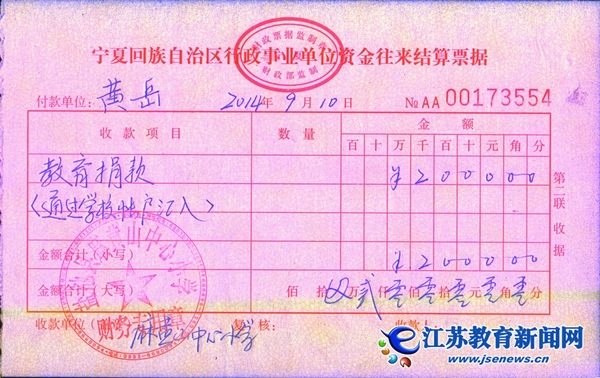 宁夏回族自治区行政事业单位资金往来结算票据
财政部监制
付款单位：黄岳 2014年9月10日 №AA 00173554
收款项目 数量 金额
百十万千百十元角分
教育捐款 ¥200000
（通过学校帐户汇入）
金额合计（小写） ¥200000
金额合计（大写） 佰拾万仟佰拾元角分 贰零零零零零
收款单位 麻黄山中心小学 复核： 收款人
财务专用章
第二联 收据
江苏教育新闻网
www.jsenews.cn